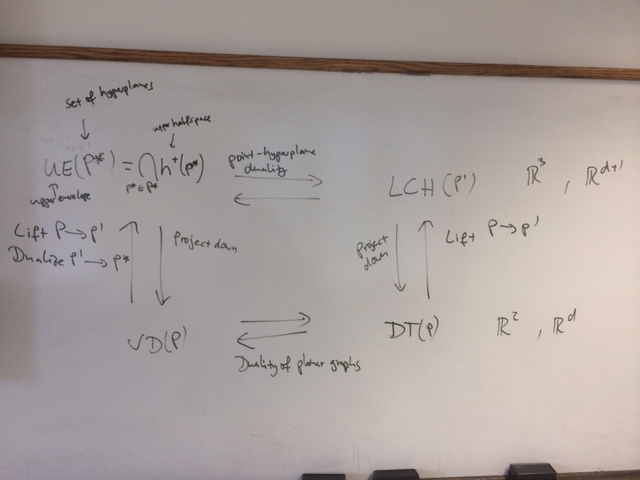 set of hyperplanes
upper halfspace
UE(P*) = ⋂ h⁺(p*)
p* ∈ P*
upper envelope
point-hyperplane
duality
LCH(P') ℝ³, ℝᵈ⁺¹
Lift P → P'
Dualize P' → P*
Project down
Project
down
Lift P → P'
VD(P)
DT(P) ℝ², ℝᵈ
Duality of planar graphs